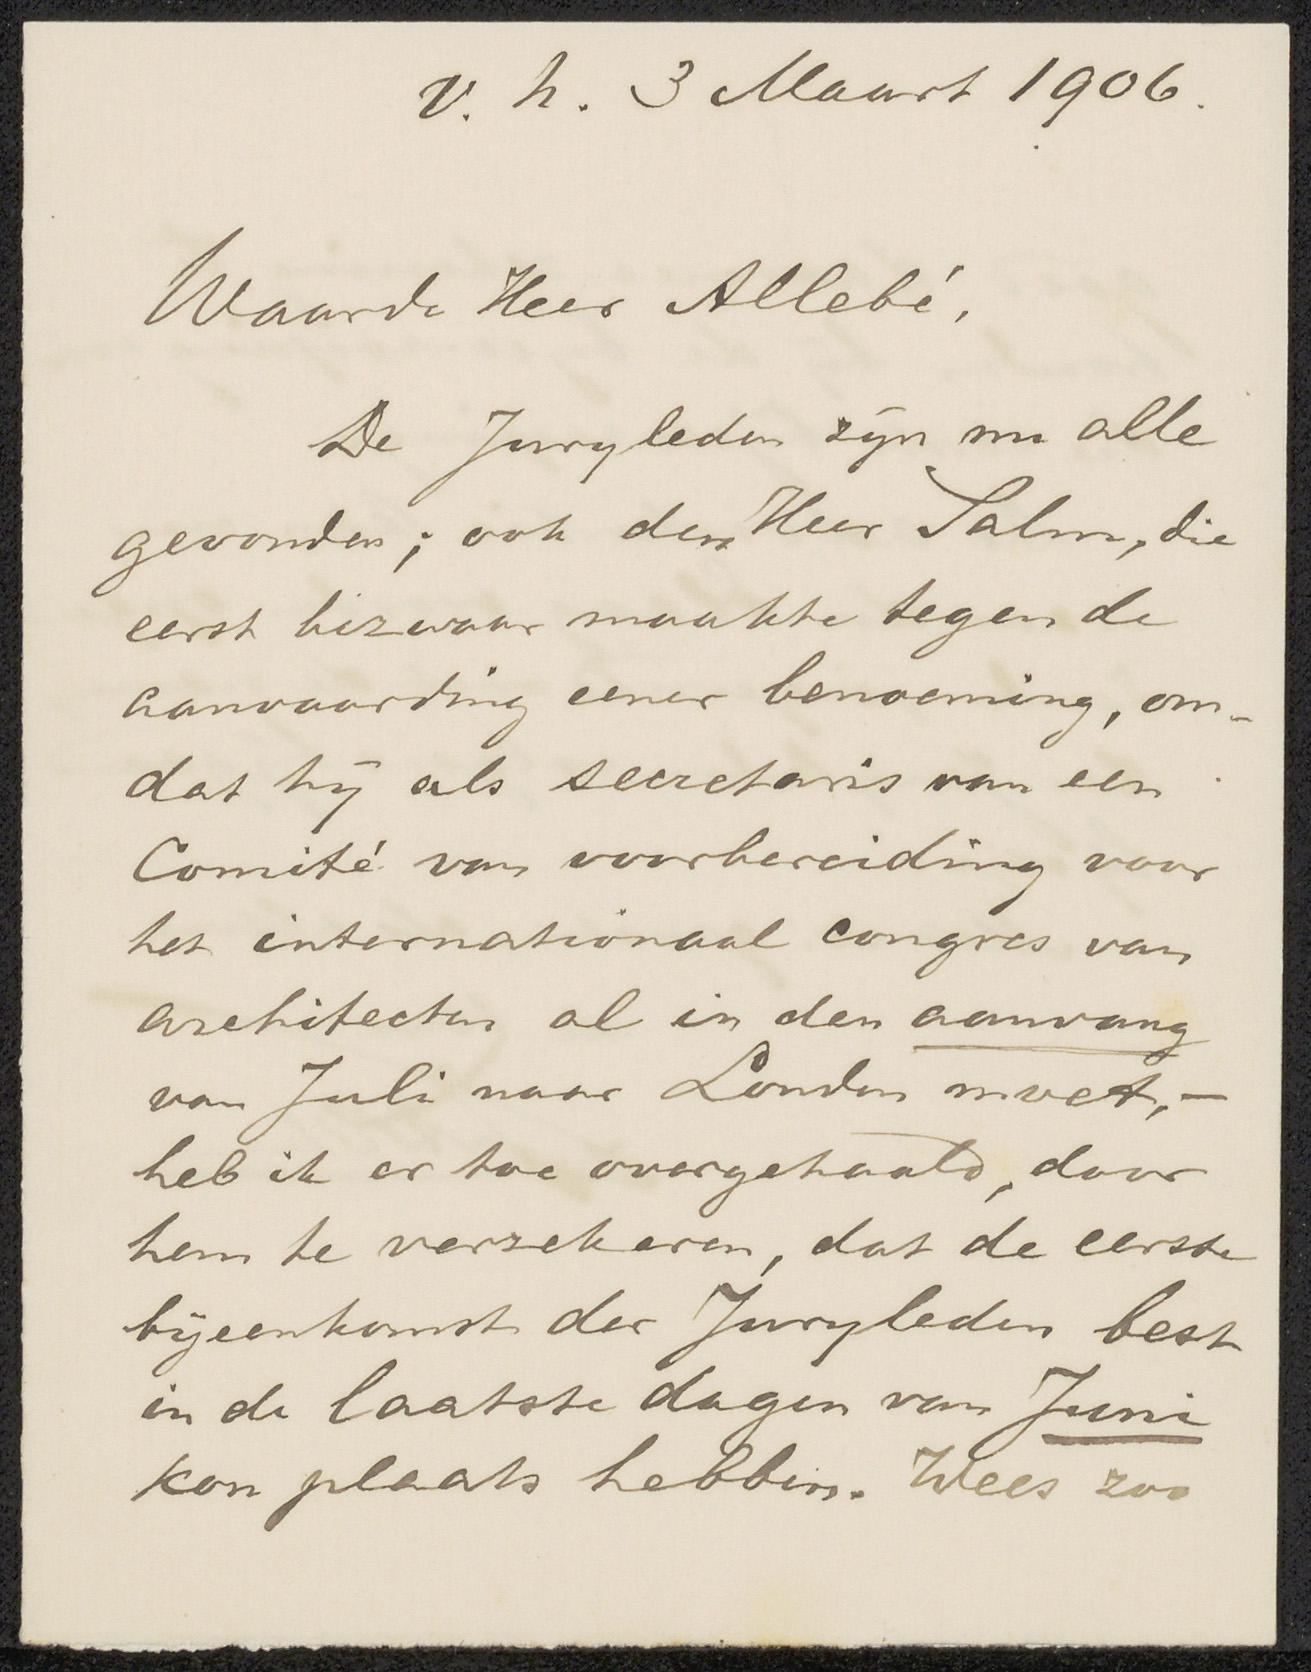 v. h. 3 Maart 1906.
Waarde Heer Allebé,
De Juryleden zijn nu alle
gevonden; ook den Heer Salm, die
eerst bezwaar maakte tegen de
aanvaarding eener benoeming, om-
dat hij als secretaris van een
Comité van voorbereiding voor
het internationaal congres van
architecten al in den aanvang
van Juli naar Londen moet, -
heb ik er toe overgehaald, door
hem te verzekeren, dat de eerste
bijeenkomst der Juryleden best
in de laatste dagen van Juni
kon plaats hebben. Wees zoo